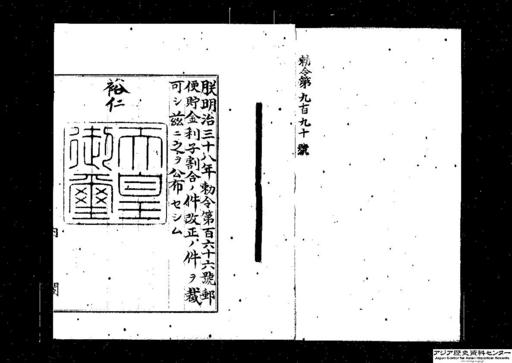 勅令第九百九十號
朕明治三十八年勅令第百六十六號郵
便貯金利子割合ノ件改正ノ件ヲ裁
可シ茲ニ之ヲ公布セシム
裕仁
天皇
御璽
内閣
アジア歴史資料センター
Japan Center for Asian Historical Records